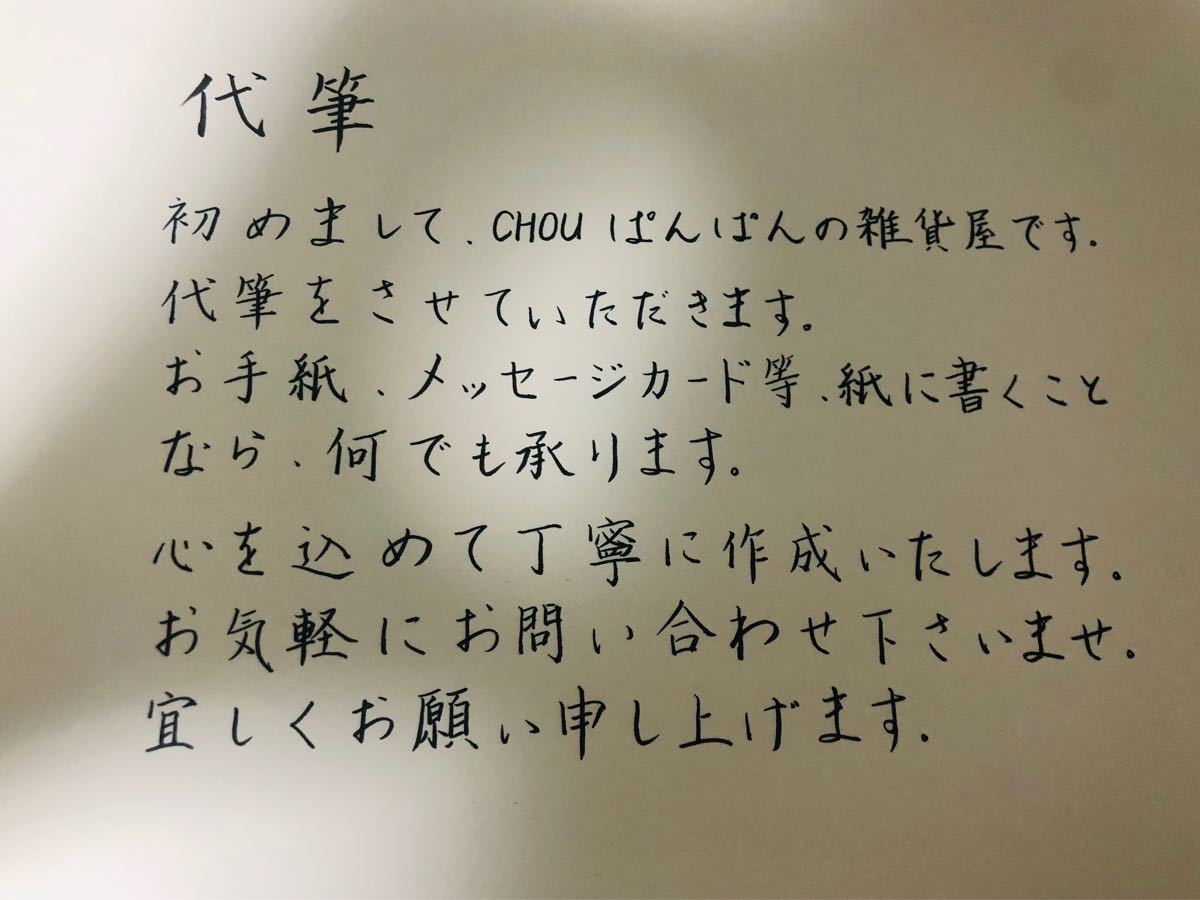 代筆
初めまして、CHOUぱんぱんの雑貨屋です。
代筆をさせていただきます。
お手紙、メッセージカード等、紙に書くこと
なら、何でも承ります。
心を込めて丁寧に作成いたします。
お気軽にお問い合わせ下さいませ。
宜しくお願い申し上げます。